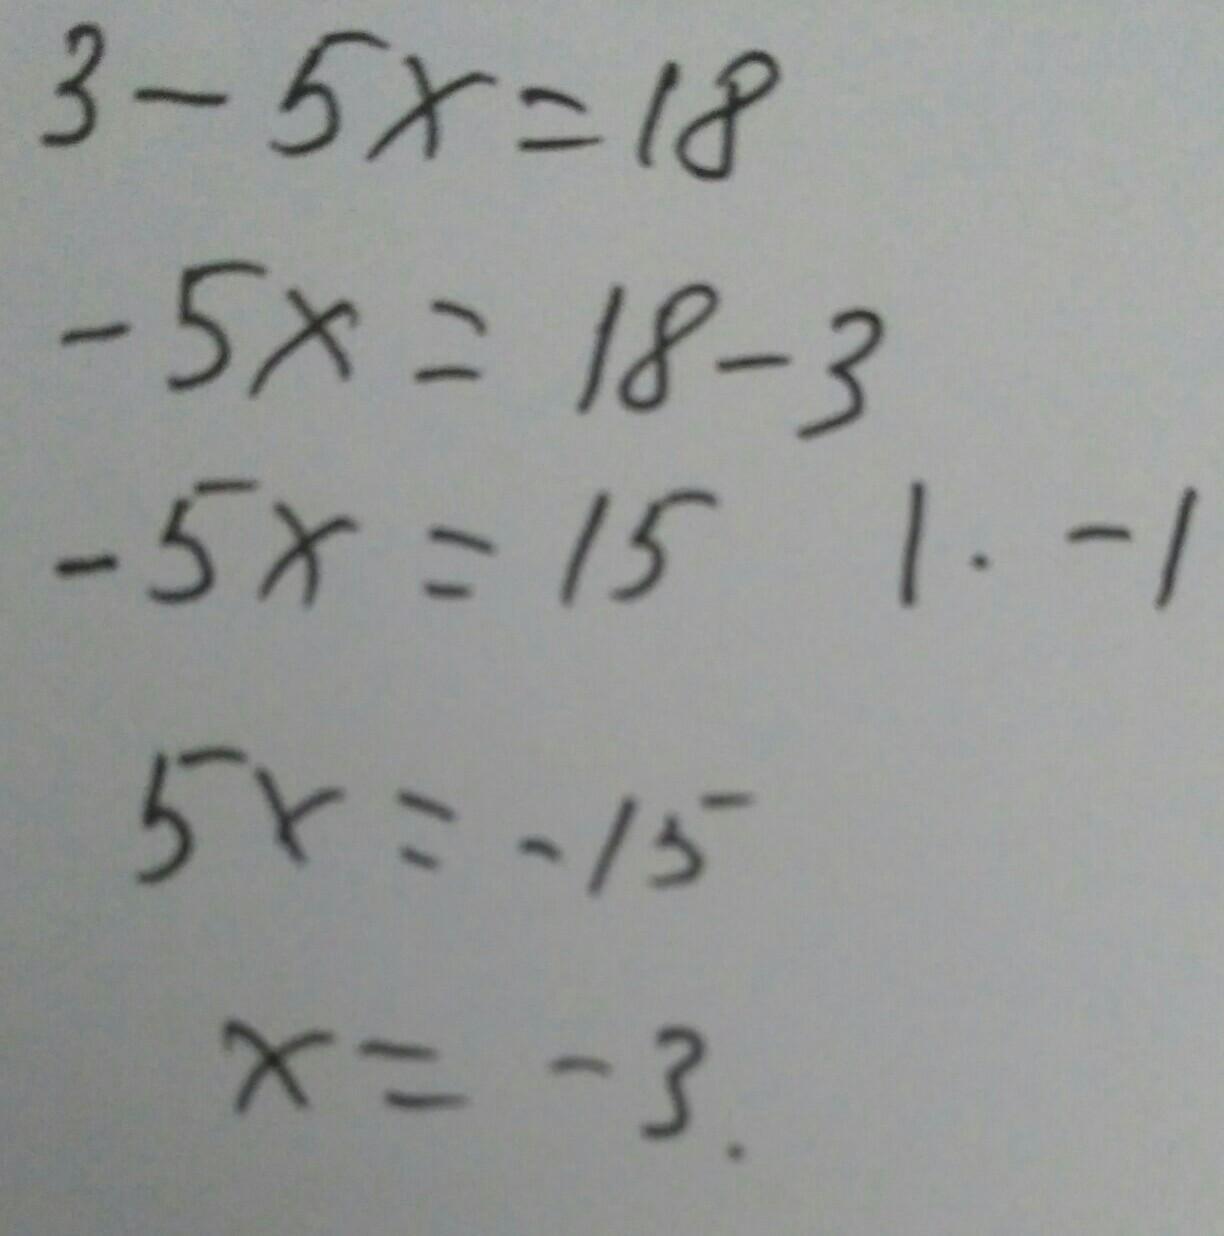 3 - 5x = 18
- 5x = 18 - 3
- 5x = 15 | · - 1
5x = - 15
x = - 3.